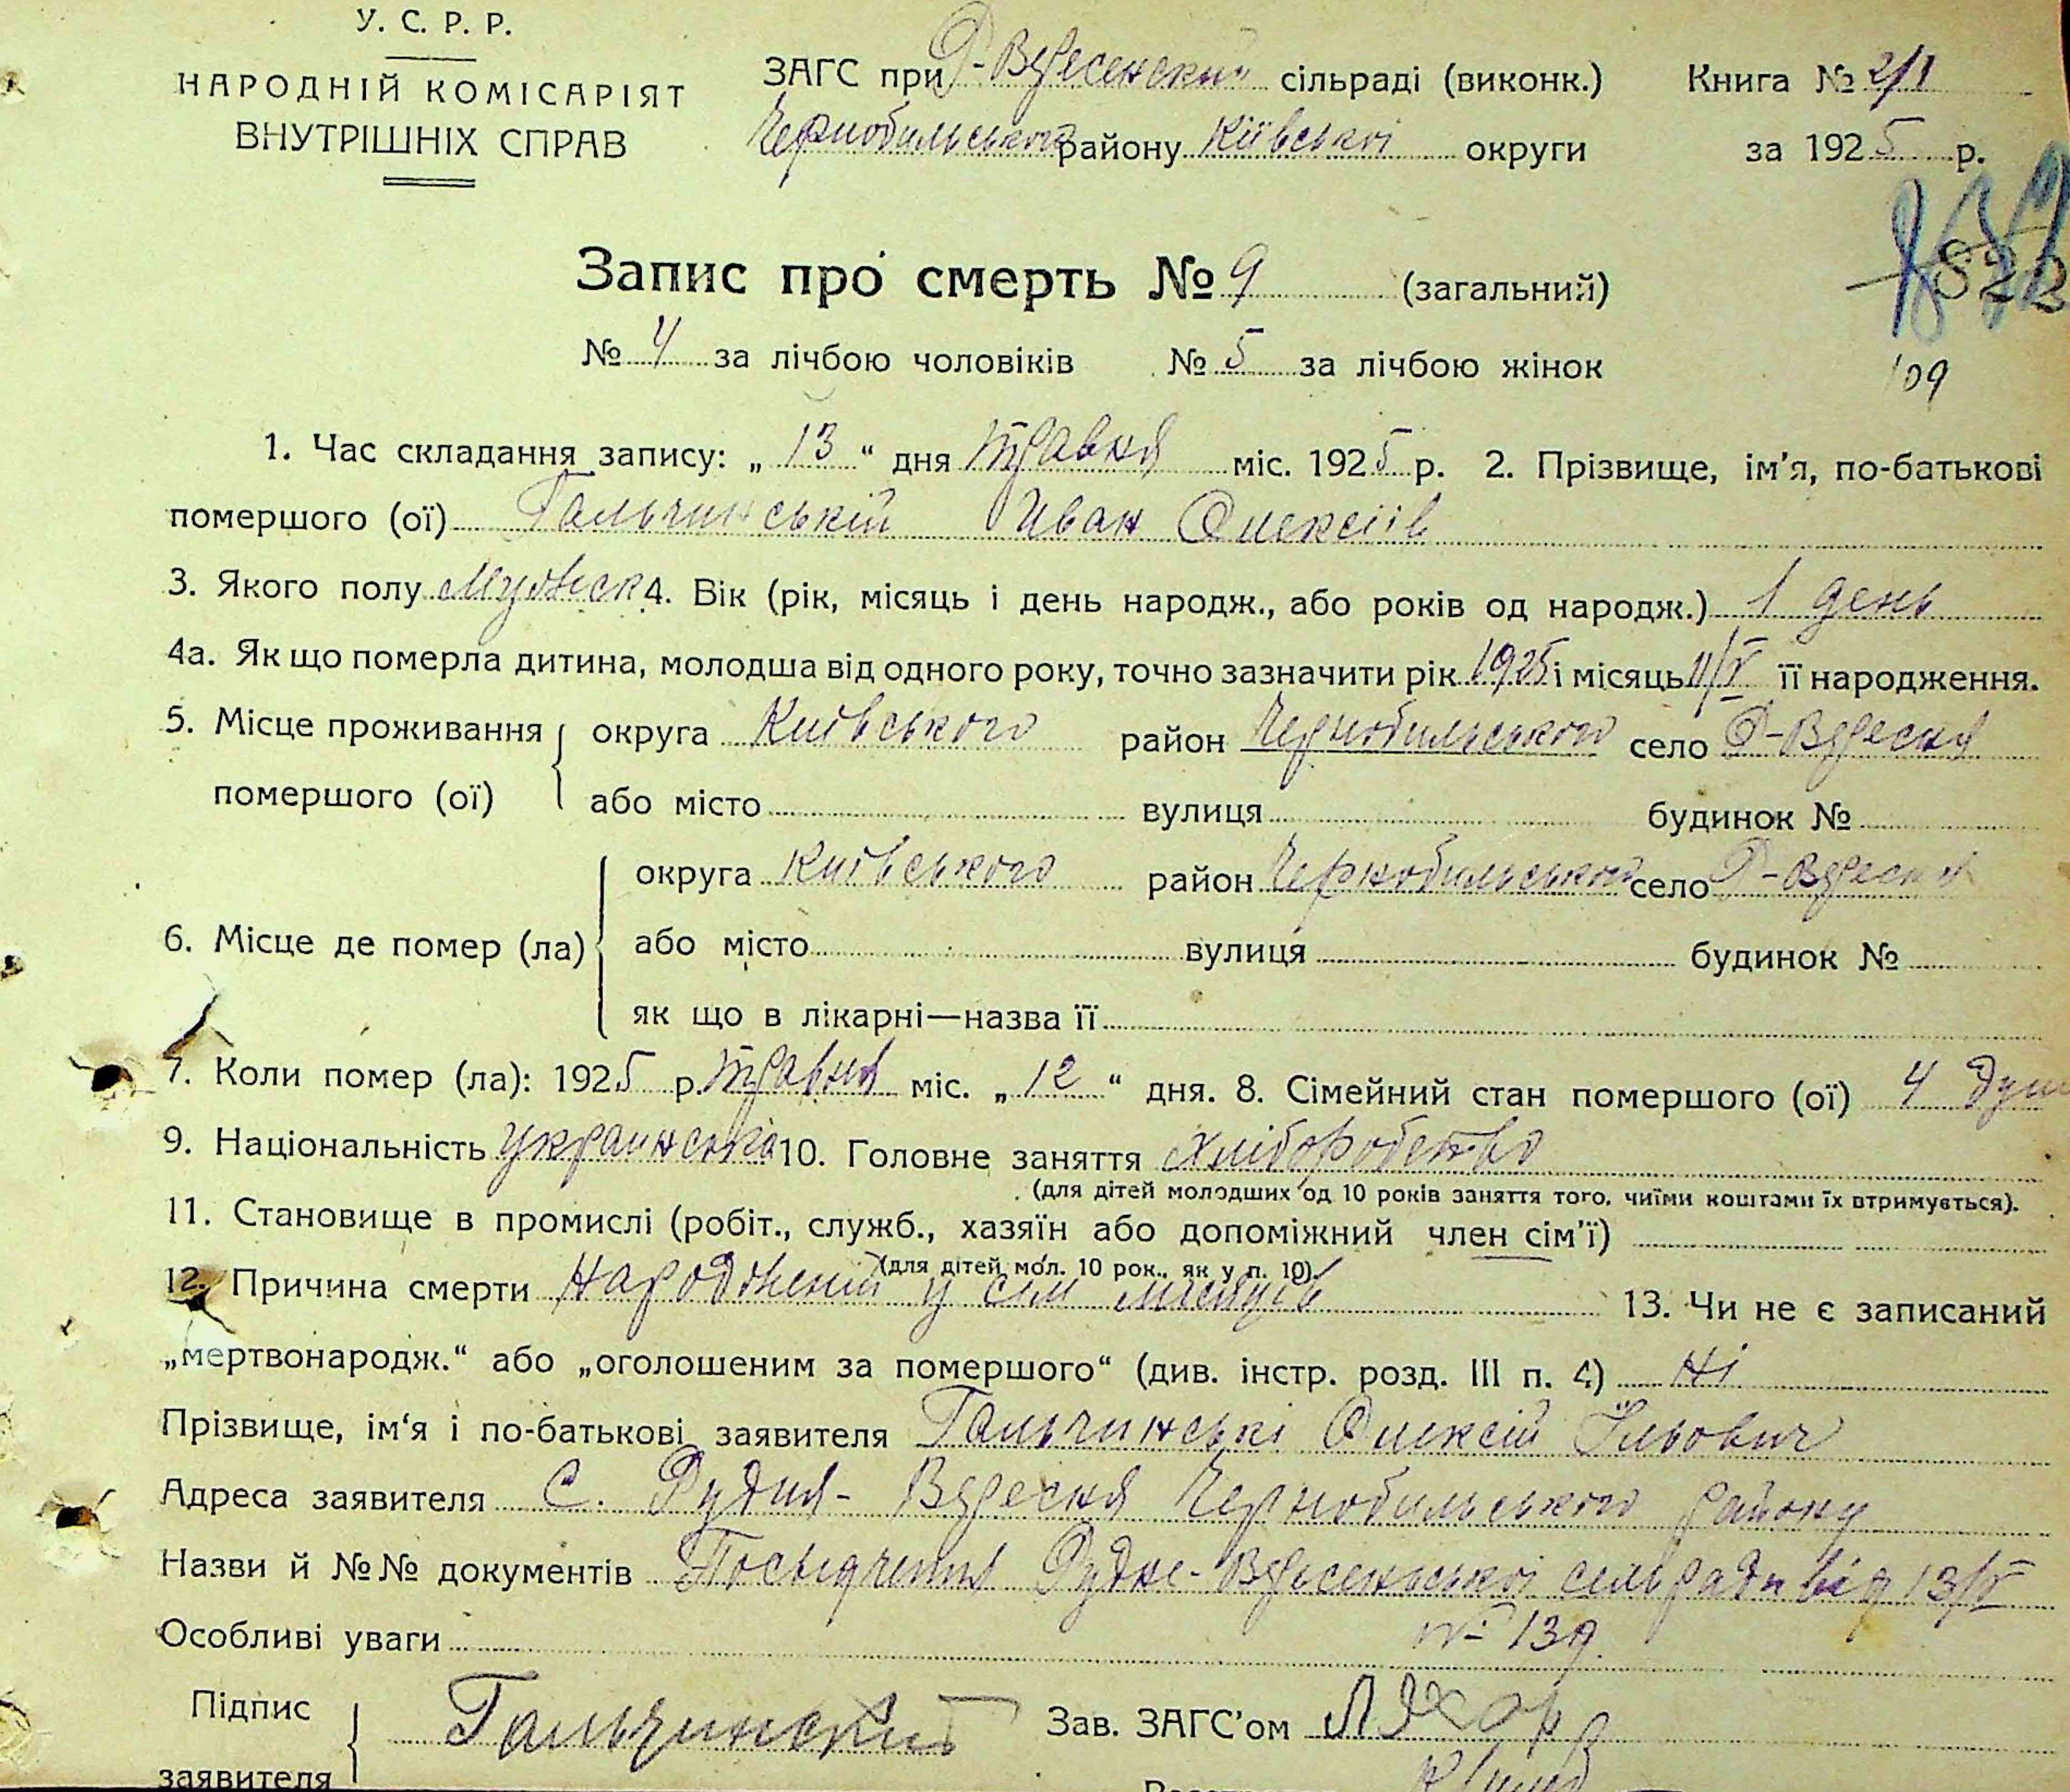 У. С. Р. Р.
НАРОДНІЙ КОМІСАРІЯТ
ВНУТРІШНІХ СПРАВ
ЗАГС при Р-Вересенский сільраді (виконк.) Книга № 2/1
Чернобильського району Київської округи за 1925 р.
822
Запис про смерть № 9 (загальний)
№ 4 за лічбою чоловіків № 5 за лічбою жінок
109
1. Час складання запису: „ 13 “ дня травня міс. 1925 р. 2. Прізвище, ім'я, по-батькові
помершого (ої) Гальчинській Иван Олексіів
3. Якого полу Мужеск 4. Вік (рік, місяць і день народж., або років од народж.) 1 день
4а. Як що померла дитина, молодша від одного року, точно зазначити рік 1925 і місяць 11/V її народження.
5. Місце проживання помершого (ої) округа Київського район Чернобильського село Р-Вересня
або місто вулиця будинок №
6. Місце де помер (ла) округа Київського район Чернобильського село Р-Вересня
або місто вулиця будинок №
як що в лікарні—назва її
7. Коли помер (ла): 1925 р. травня міс. „ 12 “ дня. 8. Сімейний стан помершого (ої) 4 душ
9. Національність українська 10. Головне заняття хліборобство
(для дітей молодших од 10 років заняття того, чиїми коштами їх втримується).
11. Становище в промислі (робіт., служб., хазяїн або допоміжний член сім'ї)
(для дітей мол. 10 рок., як у п. 10)
12. Причина смерти народжений у сім місяців 13. Чи не є записаний
„мертвонародж.“ або „оголошеним за помершого“ (див. інстр. розд. III п. 4) Ні
Прізвище, ім'я і по-батькові заявителя Гальчинські Олексій Ільович
Адреса заявителя С. Рудня-Вересня Чернобильського району
Назви й №№ документів Посьвідчення Рудне-Вересенської сільради від 13/V
Особливі уваги № 139
Підпис заявителя Гальчинский Зав. ЗАГС'ом